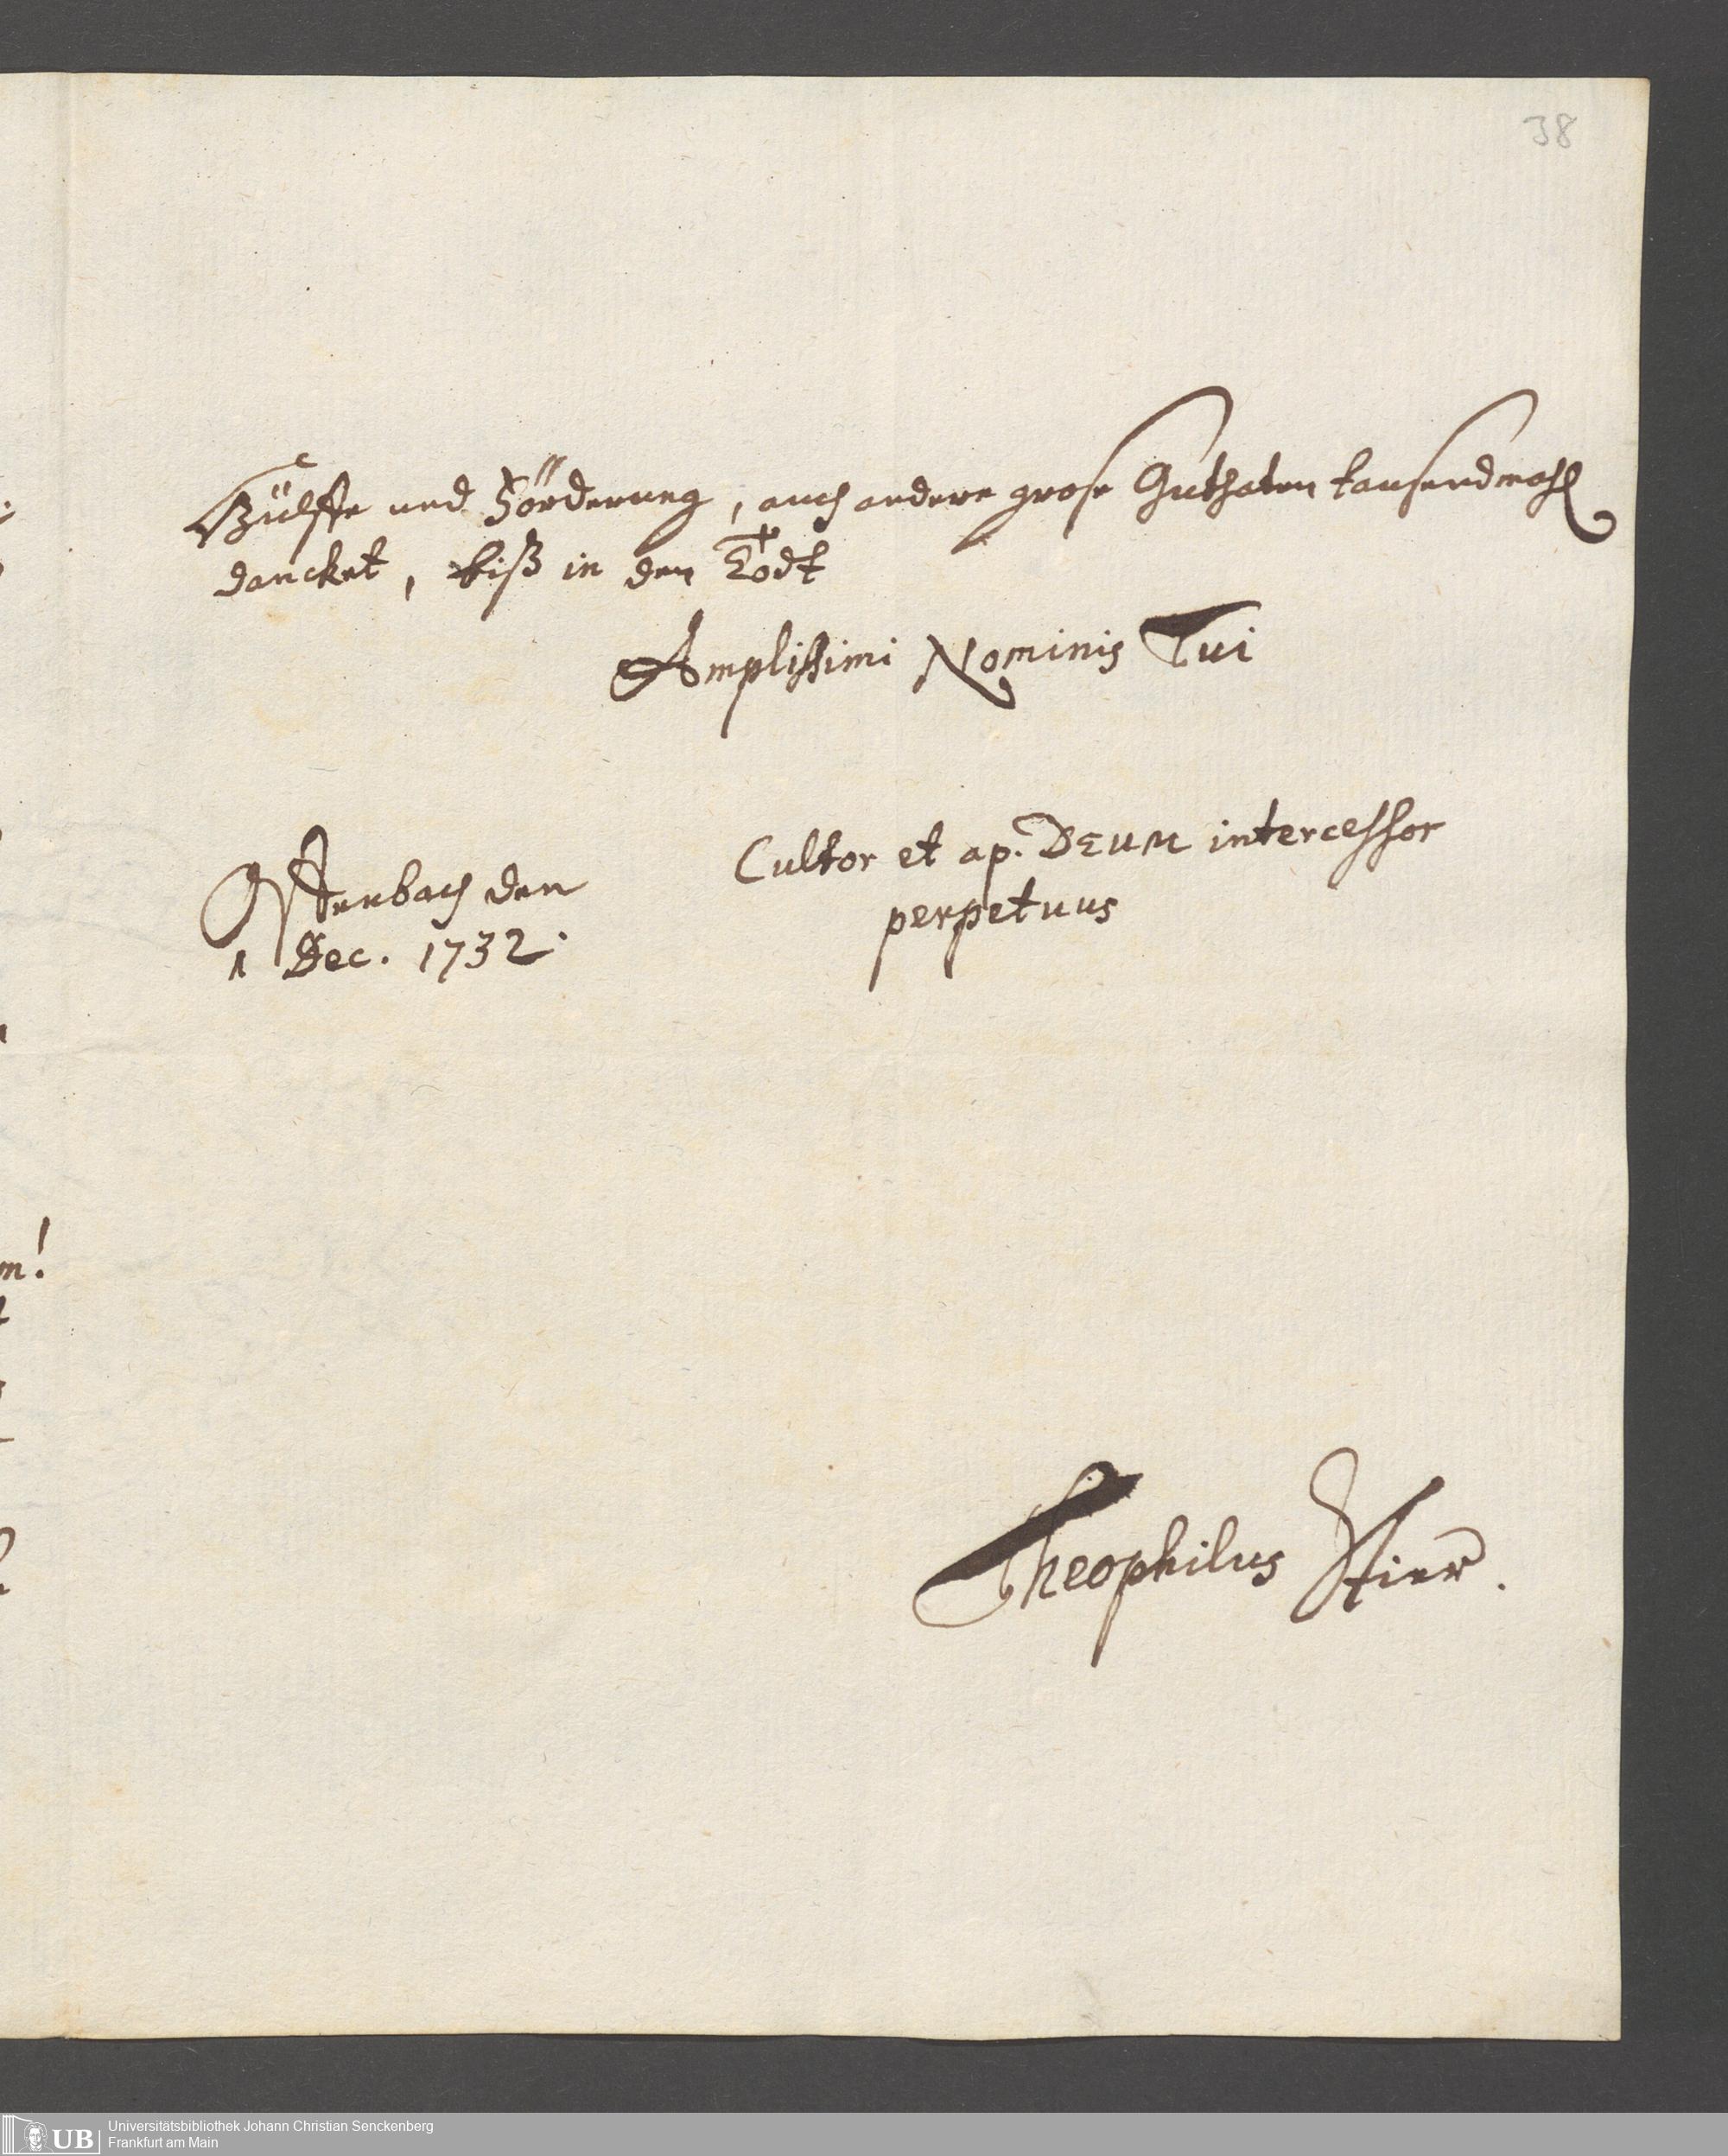 38
Hülffe und Förderung, auch andere grose Guthaten tausendmahl
dancket, biß in den Todt
Amplissimi Nominis Tui
Cultor et ap. DEUM intercessor
perpetuus
Offenbach den
1 Dec. 1732.
Theophilus Stier.
UB Universitätsbibliothek Johann Christian Senckenberg
Frankfurt am Main